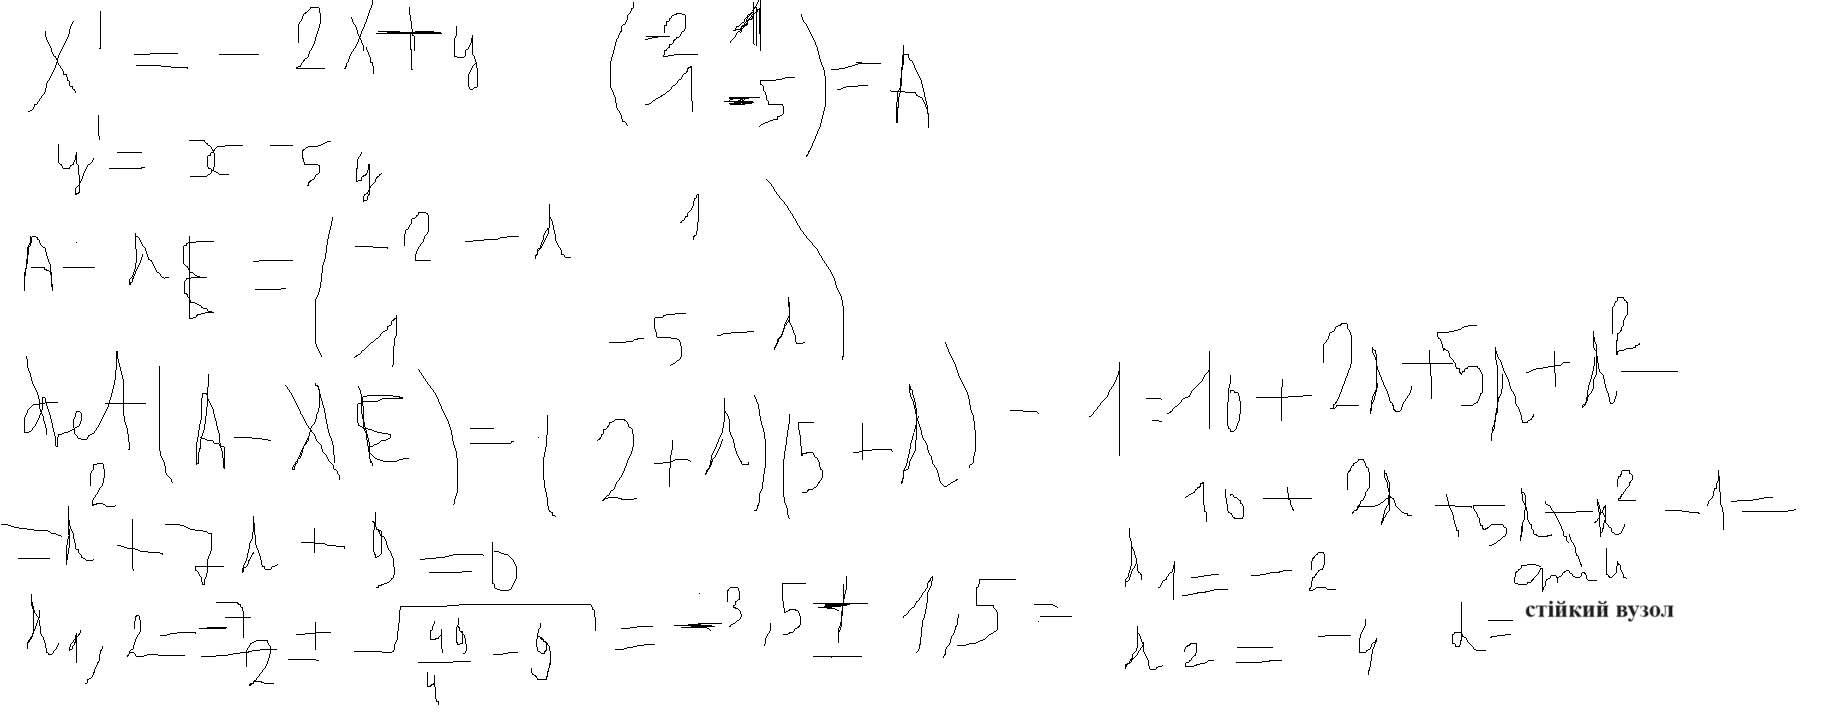 x' = - 2x + y
(-2 1
1 -5) = A
y' = x - 5y
A - λE = (-2 - λ 1
1 -5 - λ)
det(A - λE) = (2 + λ)(5 + λ) - 1 = 10 + 2λ + 5λ + λ² -
10 + 2λ + 5λ + λ² - 1 =
= λ² + 7λ + 9 = 0
λ1,2 = -7/2 ± √(49/4 - 9) = -3,5 ± 1,5 =
λ1 = -2
λ2 = -4
d =
стійкий вузол